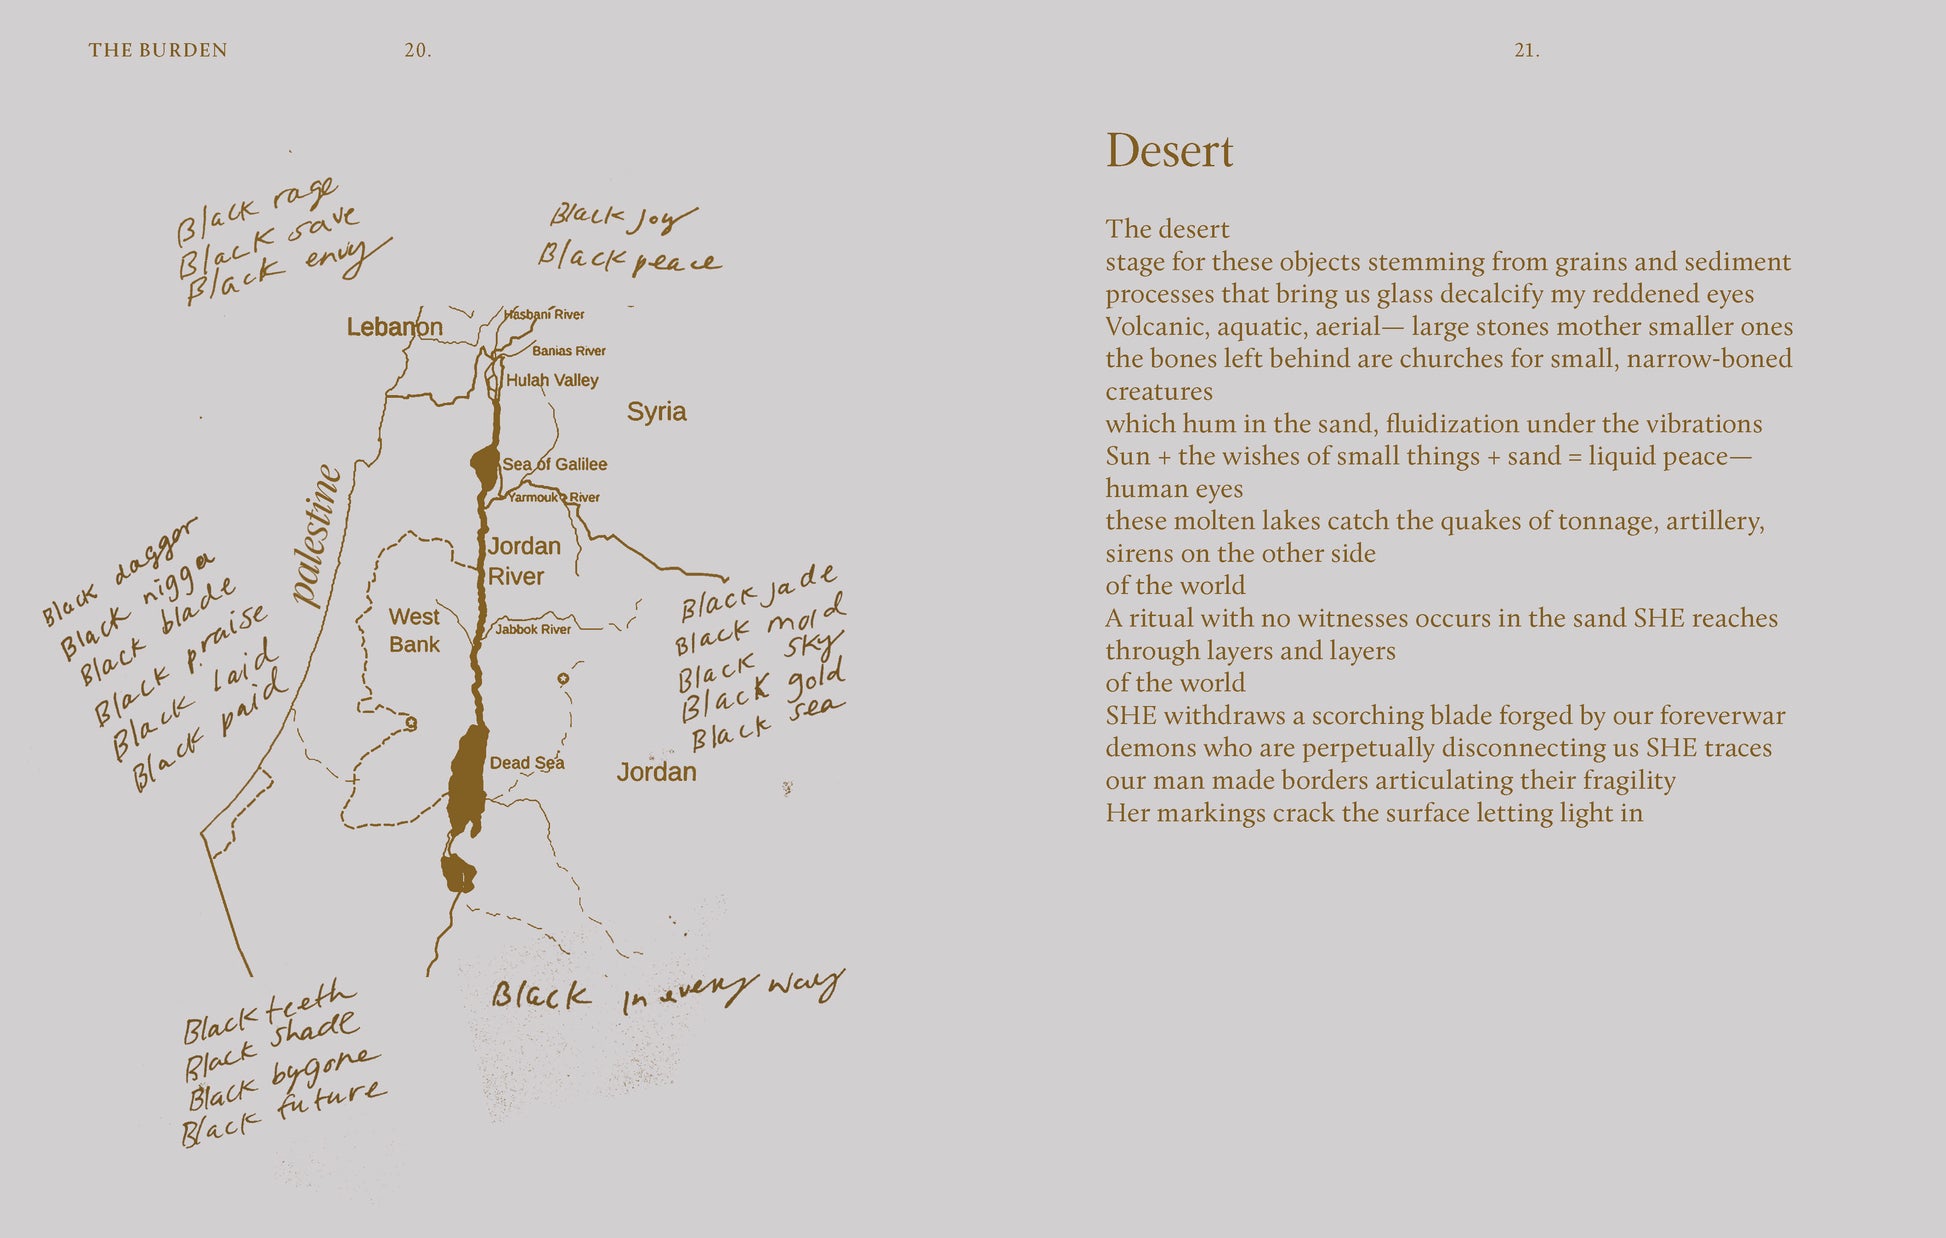 THE BURDEN
20.
Black rage
Black save
Black envy
Black joy
Black peace
Lebanon
Hasbani River
Banias River
Hulah Valley
Syria
Sea of Galilee
Yarmouk River
palestine
Jordan
River
West
Bank
Jabbok River
Dead Sea
Jordan
Black dagger
Black nigga
Black blade
Black praise
Black laid
Black paid
Black jade
Black mold
Black sky
Black gold
Black sea
Black in every way
Black teeth
Black shade
Black bygone
Black future
21.
Desert
The desert
stage for these objects stemming from grains and sediment
processes that bring us glass decalcify my reddened eyes
Volcanic, aquatic, aerial— large stones mother smaller ones
the bones left behind are churches for small, narrow-boned
creatures
which hum in the sand, fluidization under the vibrations
Sun + the wishes of small things + sand = liquid peace—
human eyes
these molten lakes catch the quakes of tonnage, artillery,
sirens on the other side
of the world
A ritual with no witnesses occurs in the sand SHE reaches
through layers and layers
of the world
SHE withdraws a scorching blade forged by our foreverwar
demons who are perpetually disconnecting us SHE traces
our man made borders articulating their fragility
Her markings crack the surface letting light in